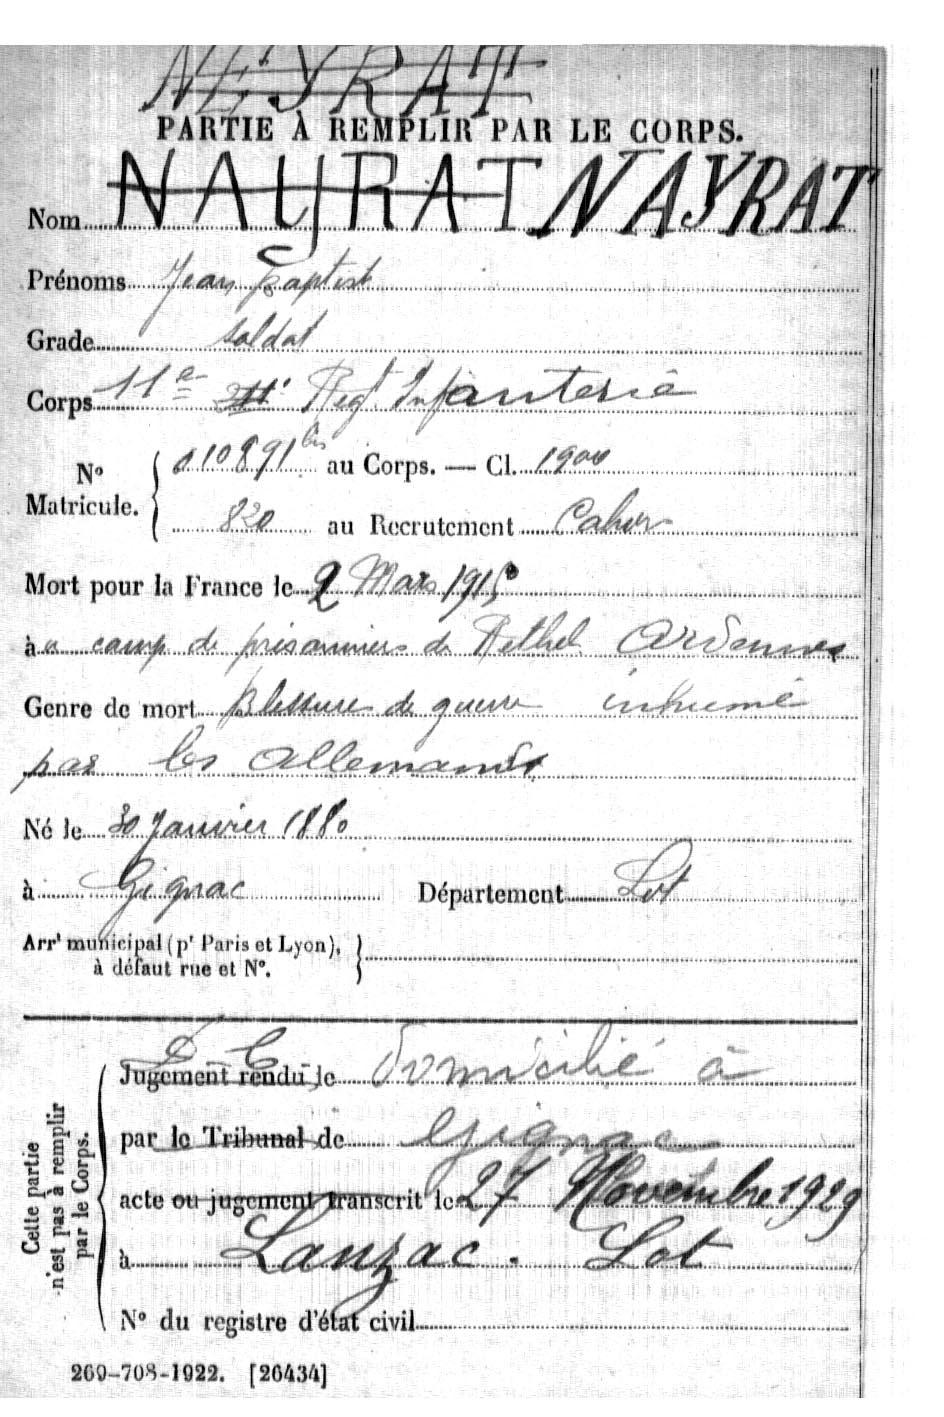 NEYRAT
PARTIE À REMPLIR PAR LE CORPS.
Nom NAYRAT NAYRAT
Prénoms Jean Baptiste
Grade soldat
Corps 11e Regt Infanterie
No Matricule. { 010891 bis au Corps. — Cl. 1900
820 au Recrutement Cahors
Mort pour la France le 2 Mars 1915
à u camp de prisonniers de Rethel Ardennes
Genre de mort Blessure de guerre inhumé
par les allemands
Né le 30 Janvier 1880
à Gignac Département Lot
Arrt municipal (pr Paris et Lyon), }
à défaut rue et No.
Cette partie n'est pas à remplir par le Corps.
Jugement rendu le domicilié à
par le Tribunal de Gignac
acte ou jugement transcrit le 27 Novembre 1929
à Lanzac. Lot
No du registre d'état civil
269-708-1922. [26434]